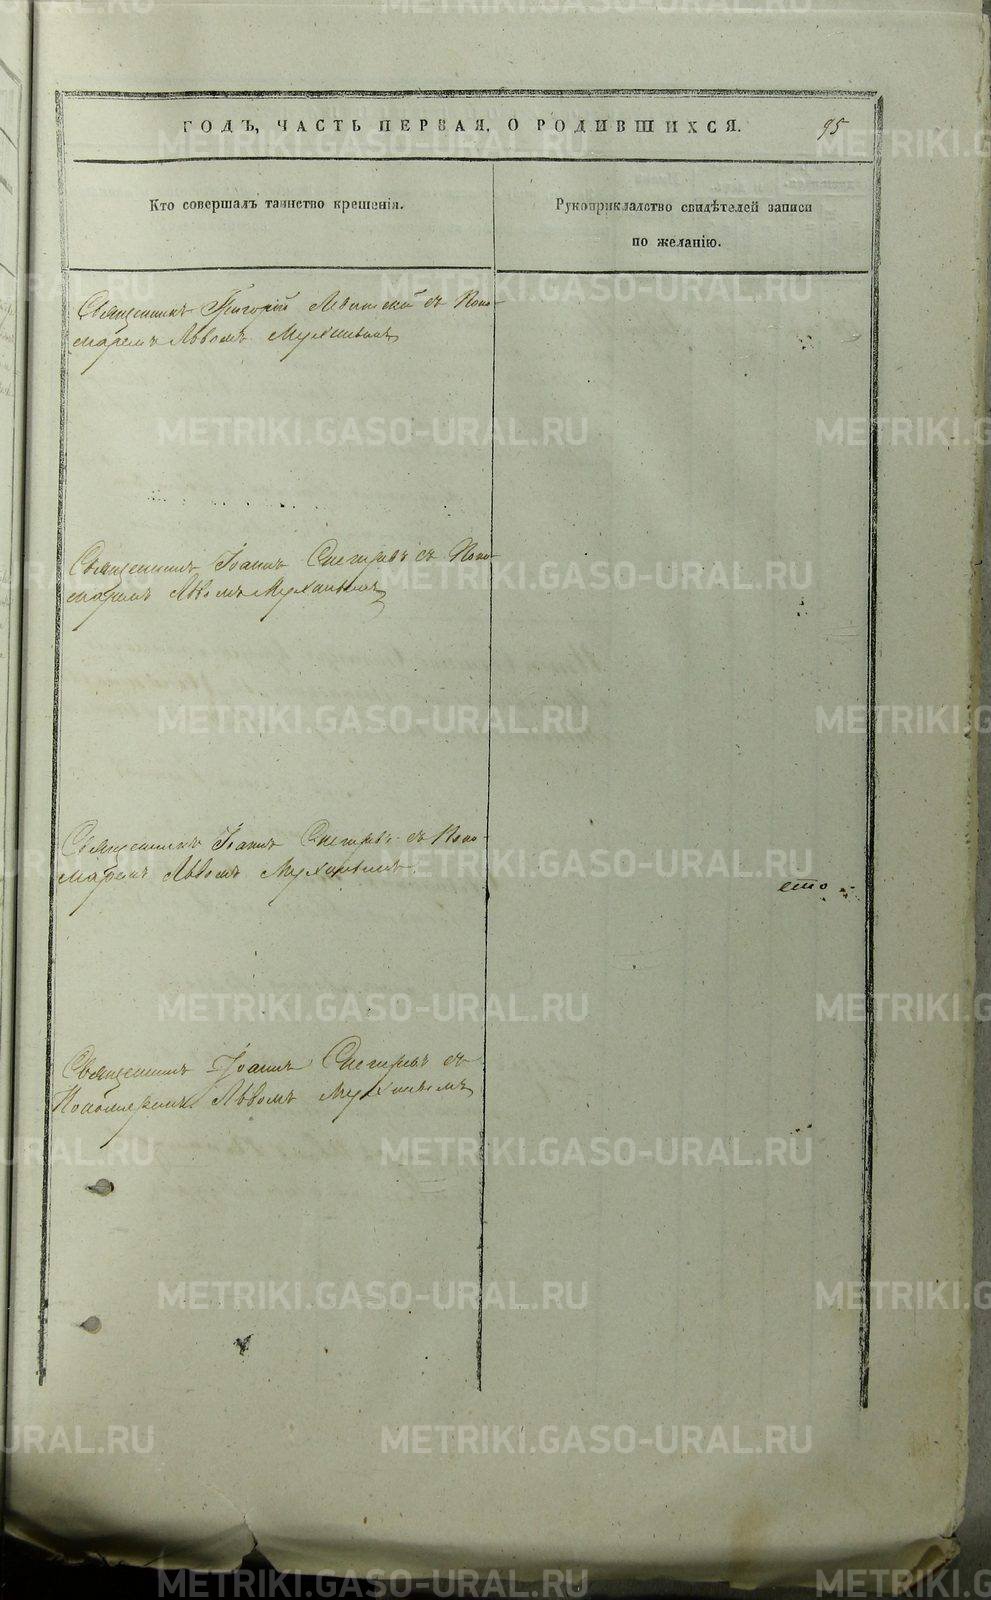 ГОДЪ, ЧАСТЬ ПЕРВАЯ, О РОДИВШИХСЯ. 95
Кто совершалъ таинство крещенія.
Рукоприкладство свидѣтелей записи
по желанію.
Священникъ Григорій Левитской съ Поно-
маремъ Львомъ
Священникъ Іоаннъ Снегиревъ съ Поно-
маремъ Львомъ
Священникъ Іоаннъ Снегиревъ съ Поно-
маремъ Львомъ
ето
Священникъ Іоаннъ Снегиревъ съ
Пономаремъ Львомъ
METRIKI.GASO-URAL.RU